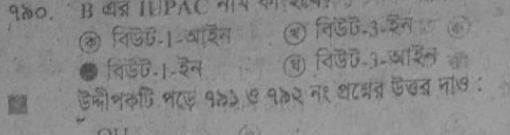 ৭৯০. B এর IUPAC নাম
ক বিউট-1-আইন খ বিউট-3-ইন
বিউট-1-ইন ঘ বিউট-3-আইন
উদ্দীপকটি পড়ে ৭৯১ ও ৭৯২ নং প্রশ্নের উত্তর দাও :